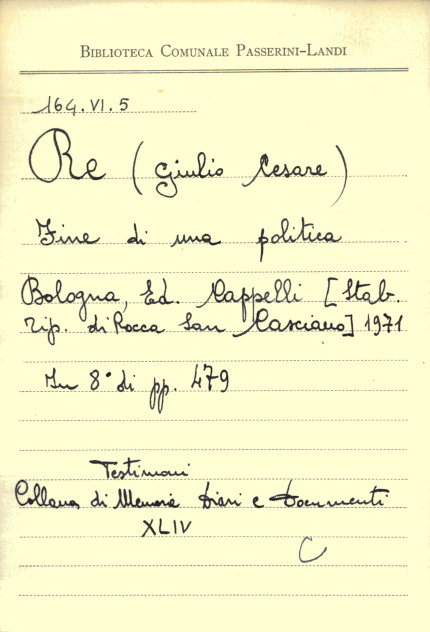 BIBLIOTECA COMUNALE PASSERINI-LANDI
164.VI.5
Re (Giulio Cesare)
Fine di una politica
Bologna, Ed. Cappelli [Stab.
Tip. di Rocca San Casciano] 1971
In 8° di pp. 479
Testimoni
Collana di Memorie Diari e Documenti
XLIV
C